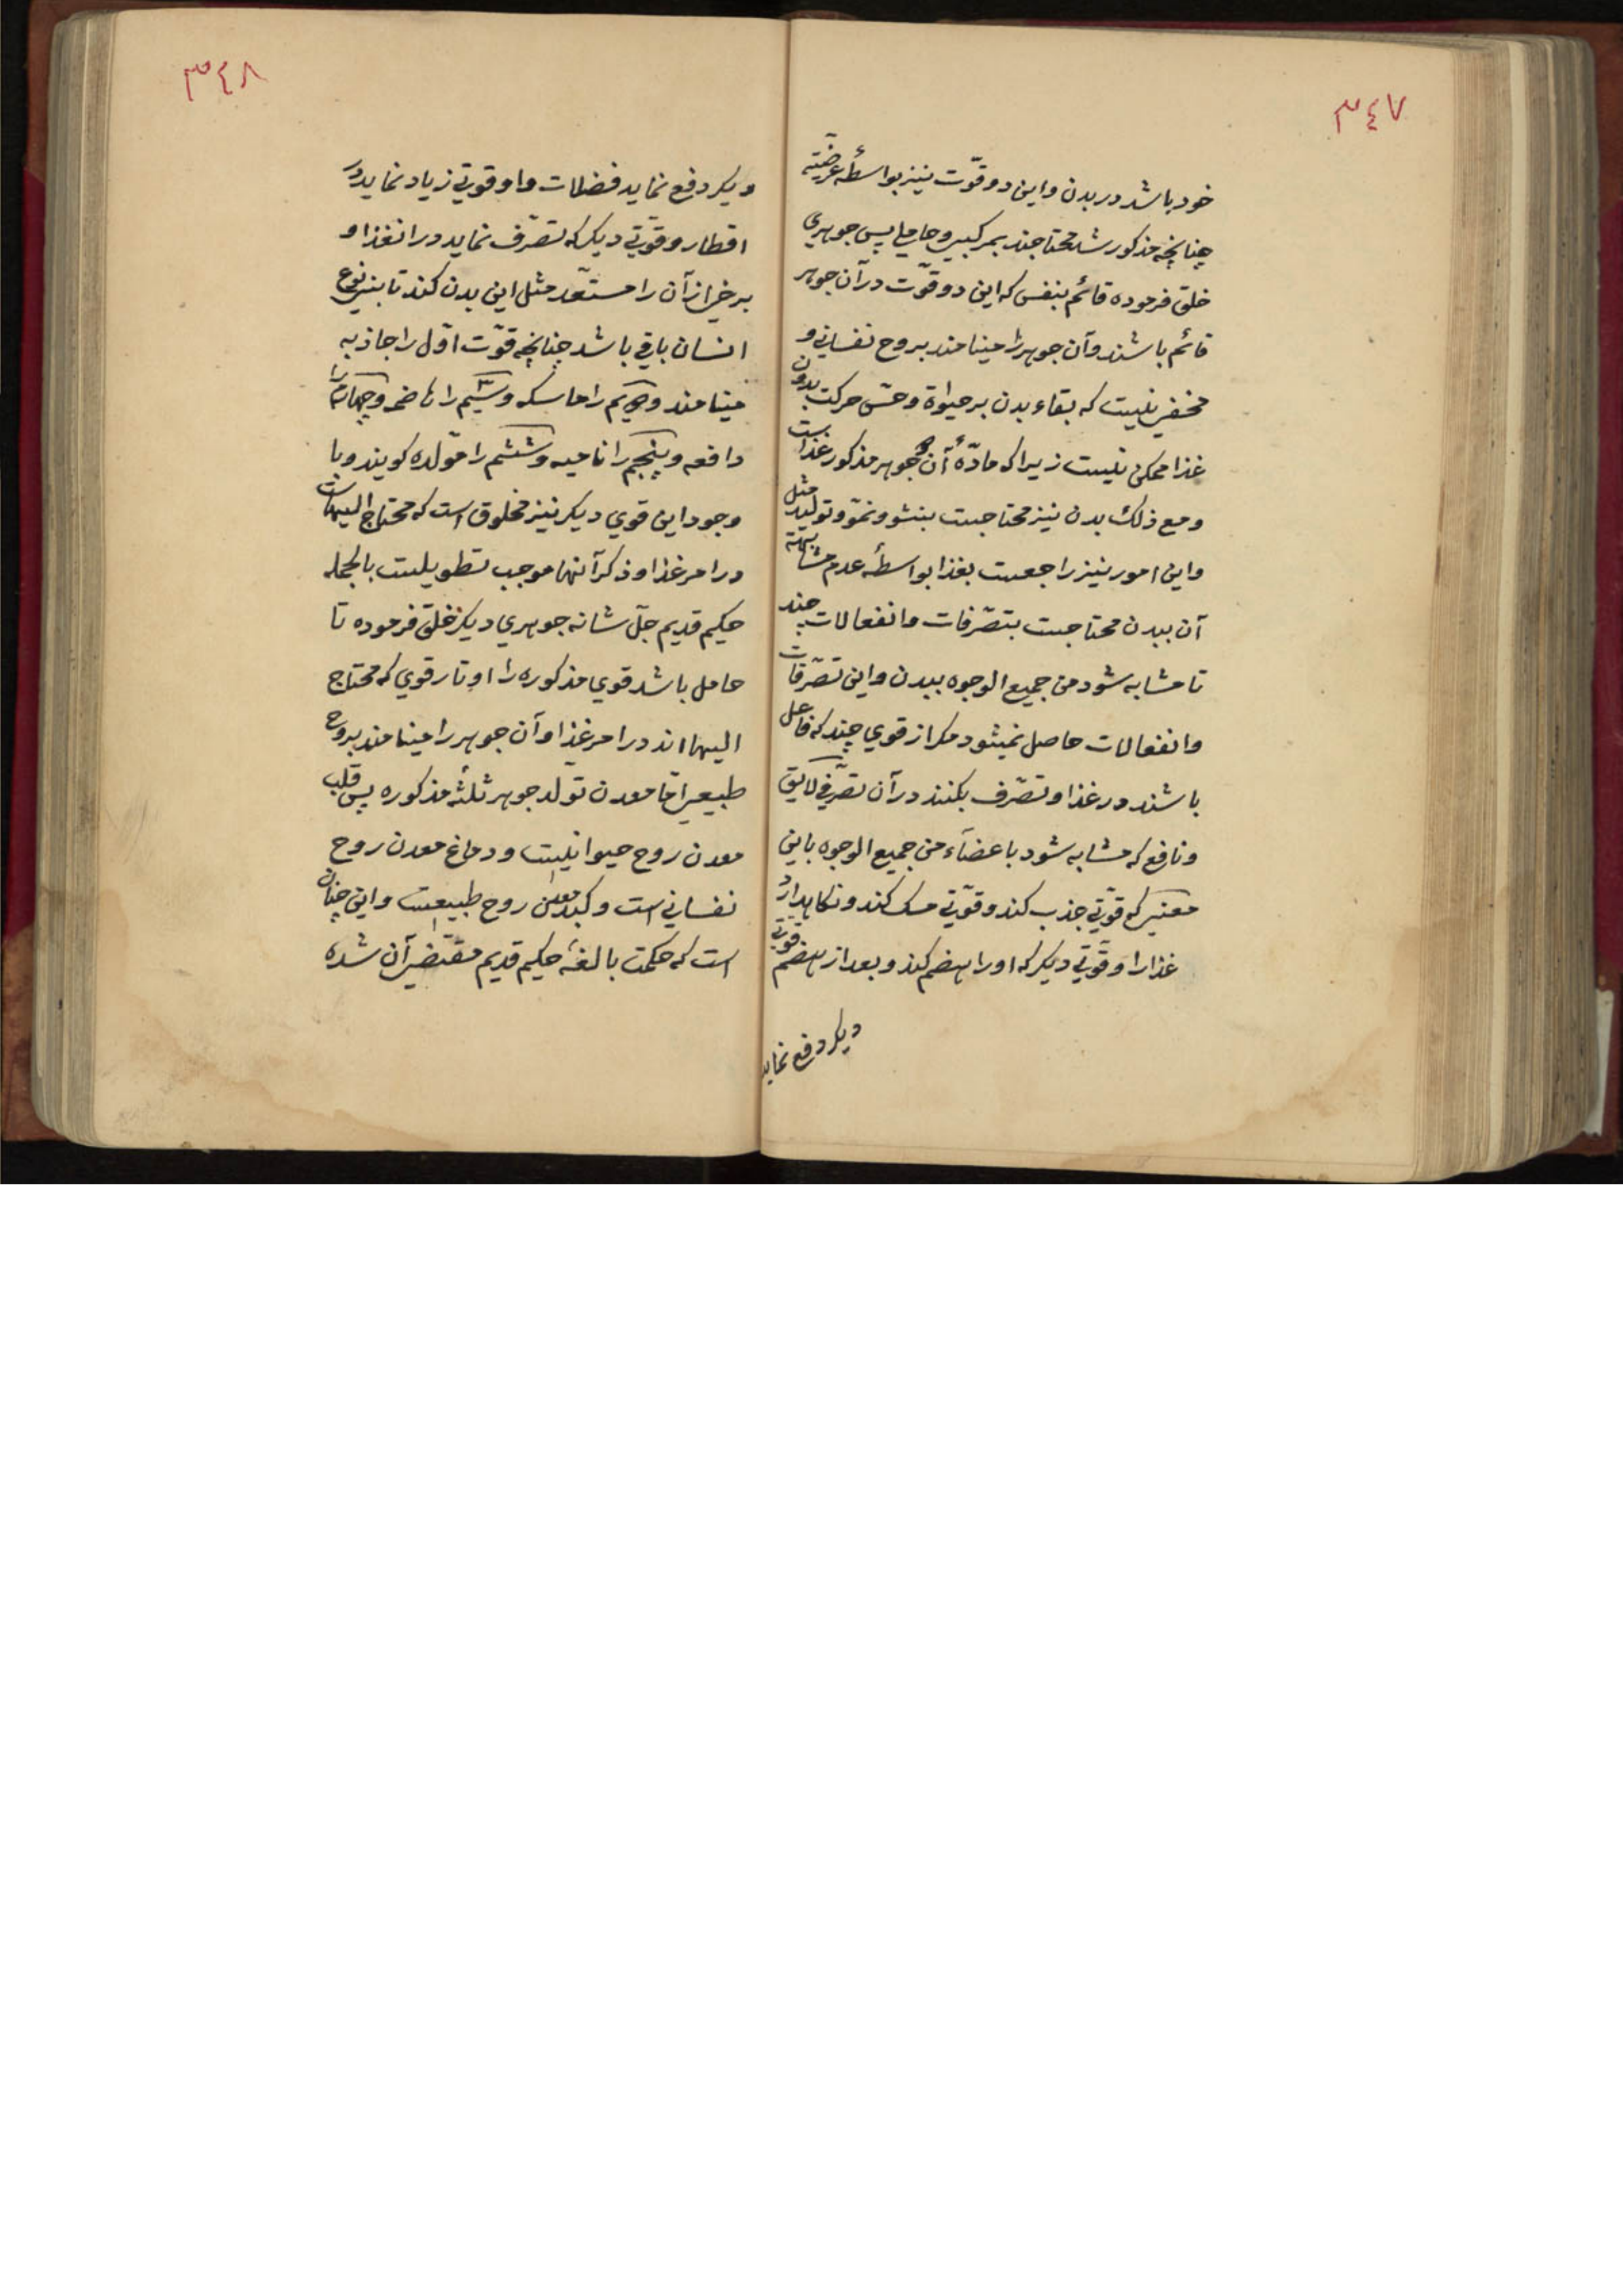 ٣٤٧
خود باشد در بدن و این دو قوّت نیز بواسطهٔ عرضیّته
چنانچه مذکور شد محتاجند بمرکبی و حاملی پس جوهری
خلق فرموده قائم بنفس که این دو قوّت در آن جوهر
قائم باشند و آن جوهر را مینامند بروح نفسانی و
مخفی نیست که بقاء بدن بر حیواة و حسّ حرکت بدون
غذا ممکن نیست زیرا که مادّهٔ آن جوهر مذکور غذاست
و مع ذلک بدن نیز محتاجست بنشو و نموّ و تولید مثل
و این امور نیز راجعست بغذا بواسطهٔ عدم مشابهته
آن ببدن محتاجست بتصرّفات و انفعالات چند
تا مشابه شود من جمیع الوجوه ببدن و این تصرّفات
و انفعالات حاصل نمیشود مکر از قوی چند که فاعل
باشند در غذا و تصرّف بکنند در آن تصرّفی لایق
و نافع که مشابه شود باعضآء من جمیع الوجوه باین
معنی که قوّتی جذب کند و قوّتی مسک کند و نکاهدارد
غذا را و قوّتی دیکر که او را هضم کند و بعد از هضم قوتی
دیکر دفع نماید
٣٤٨
دیکر دفع نماید فضلات و او قوتی زیاد نماید در
اقطار و قوّتی دیکر که تصرّف نماید در انغذا و
برخی از آن را مستعّد مثل این بدن کند تا بنی نوع
انسان باقی باشد چنانچه قوّت اوّل را جاذبه
مینامند و دویم را ماسکه و سیّم را هاضمه و چهارم را
دافعه و پنجم را نامیه و ششم را موّلده کویند و با
وجود این قوی دیکر نیز مخلوق است که محتاج الیهاست
در امر غذا و ذکر آنها موجب تطویلست بالجمله
حکیم قدیم جلّ شانه جوهری دیکر خلق فرموده تا
حامل باشد قوی مذکوره را و تار قوی که محتاج
الیها اند در امر غذا و آن جوهر را مینامند بروح
طبیعی امّا معدن تولّد جوهر ثلثهٔ مذکوره پس قلب
معدن روح حیوانیست و دماغ معدن روح
نفسانی است و کبد معدن روح طبیعیست و این چنان
است که حکمت بالغهٔ حکیم قدیم مقتضی آن شده